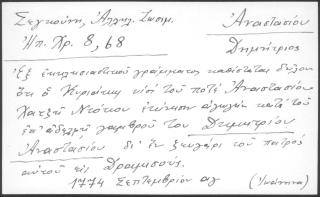 Σεγκούνη, Ἀλληλ. Ζωσιμ. Ἀναστασίου
Ἠπ. Χρ. 8, 68 Δημήτριος
Ἐξ ἐκκλησιαστικοῦ γράμματος καθίσταται δῆλον
ὅτι ὁ Κυριάκης υἱός τοῦ ποτέ Ἀναστασίου
Χατζῆ Ντόκου ἐκίνησεν ἀγωγήν κατά τοῦ
ἐπ' ἀδελφῇ γαμβροῦ του Δημητρίου
Ἀναστασίου δι' ἕν ζευγάρι τοῦ πατρός
αὐτοῦ εἰς Δραμισούς.
1774 Σεπτεμβρίου αῃ (Ἰωάννινα)